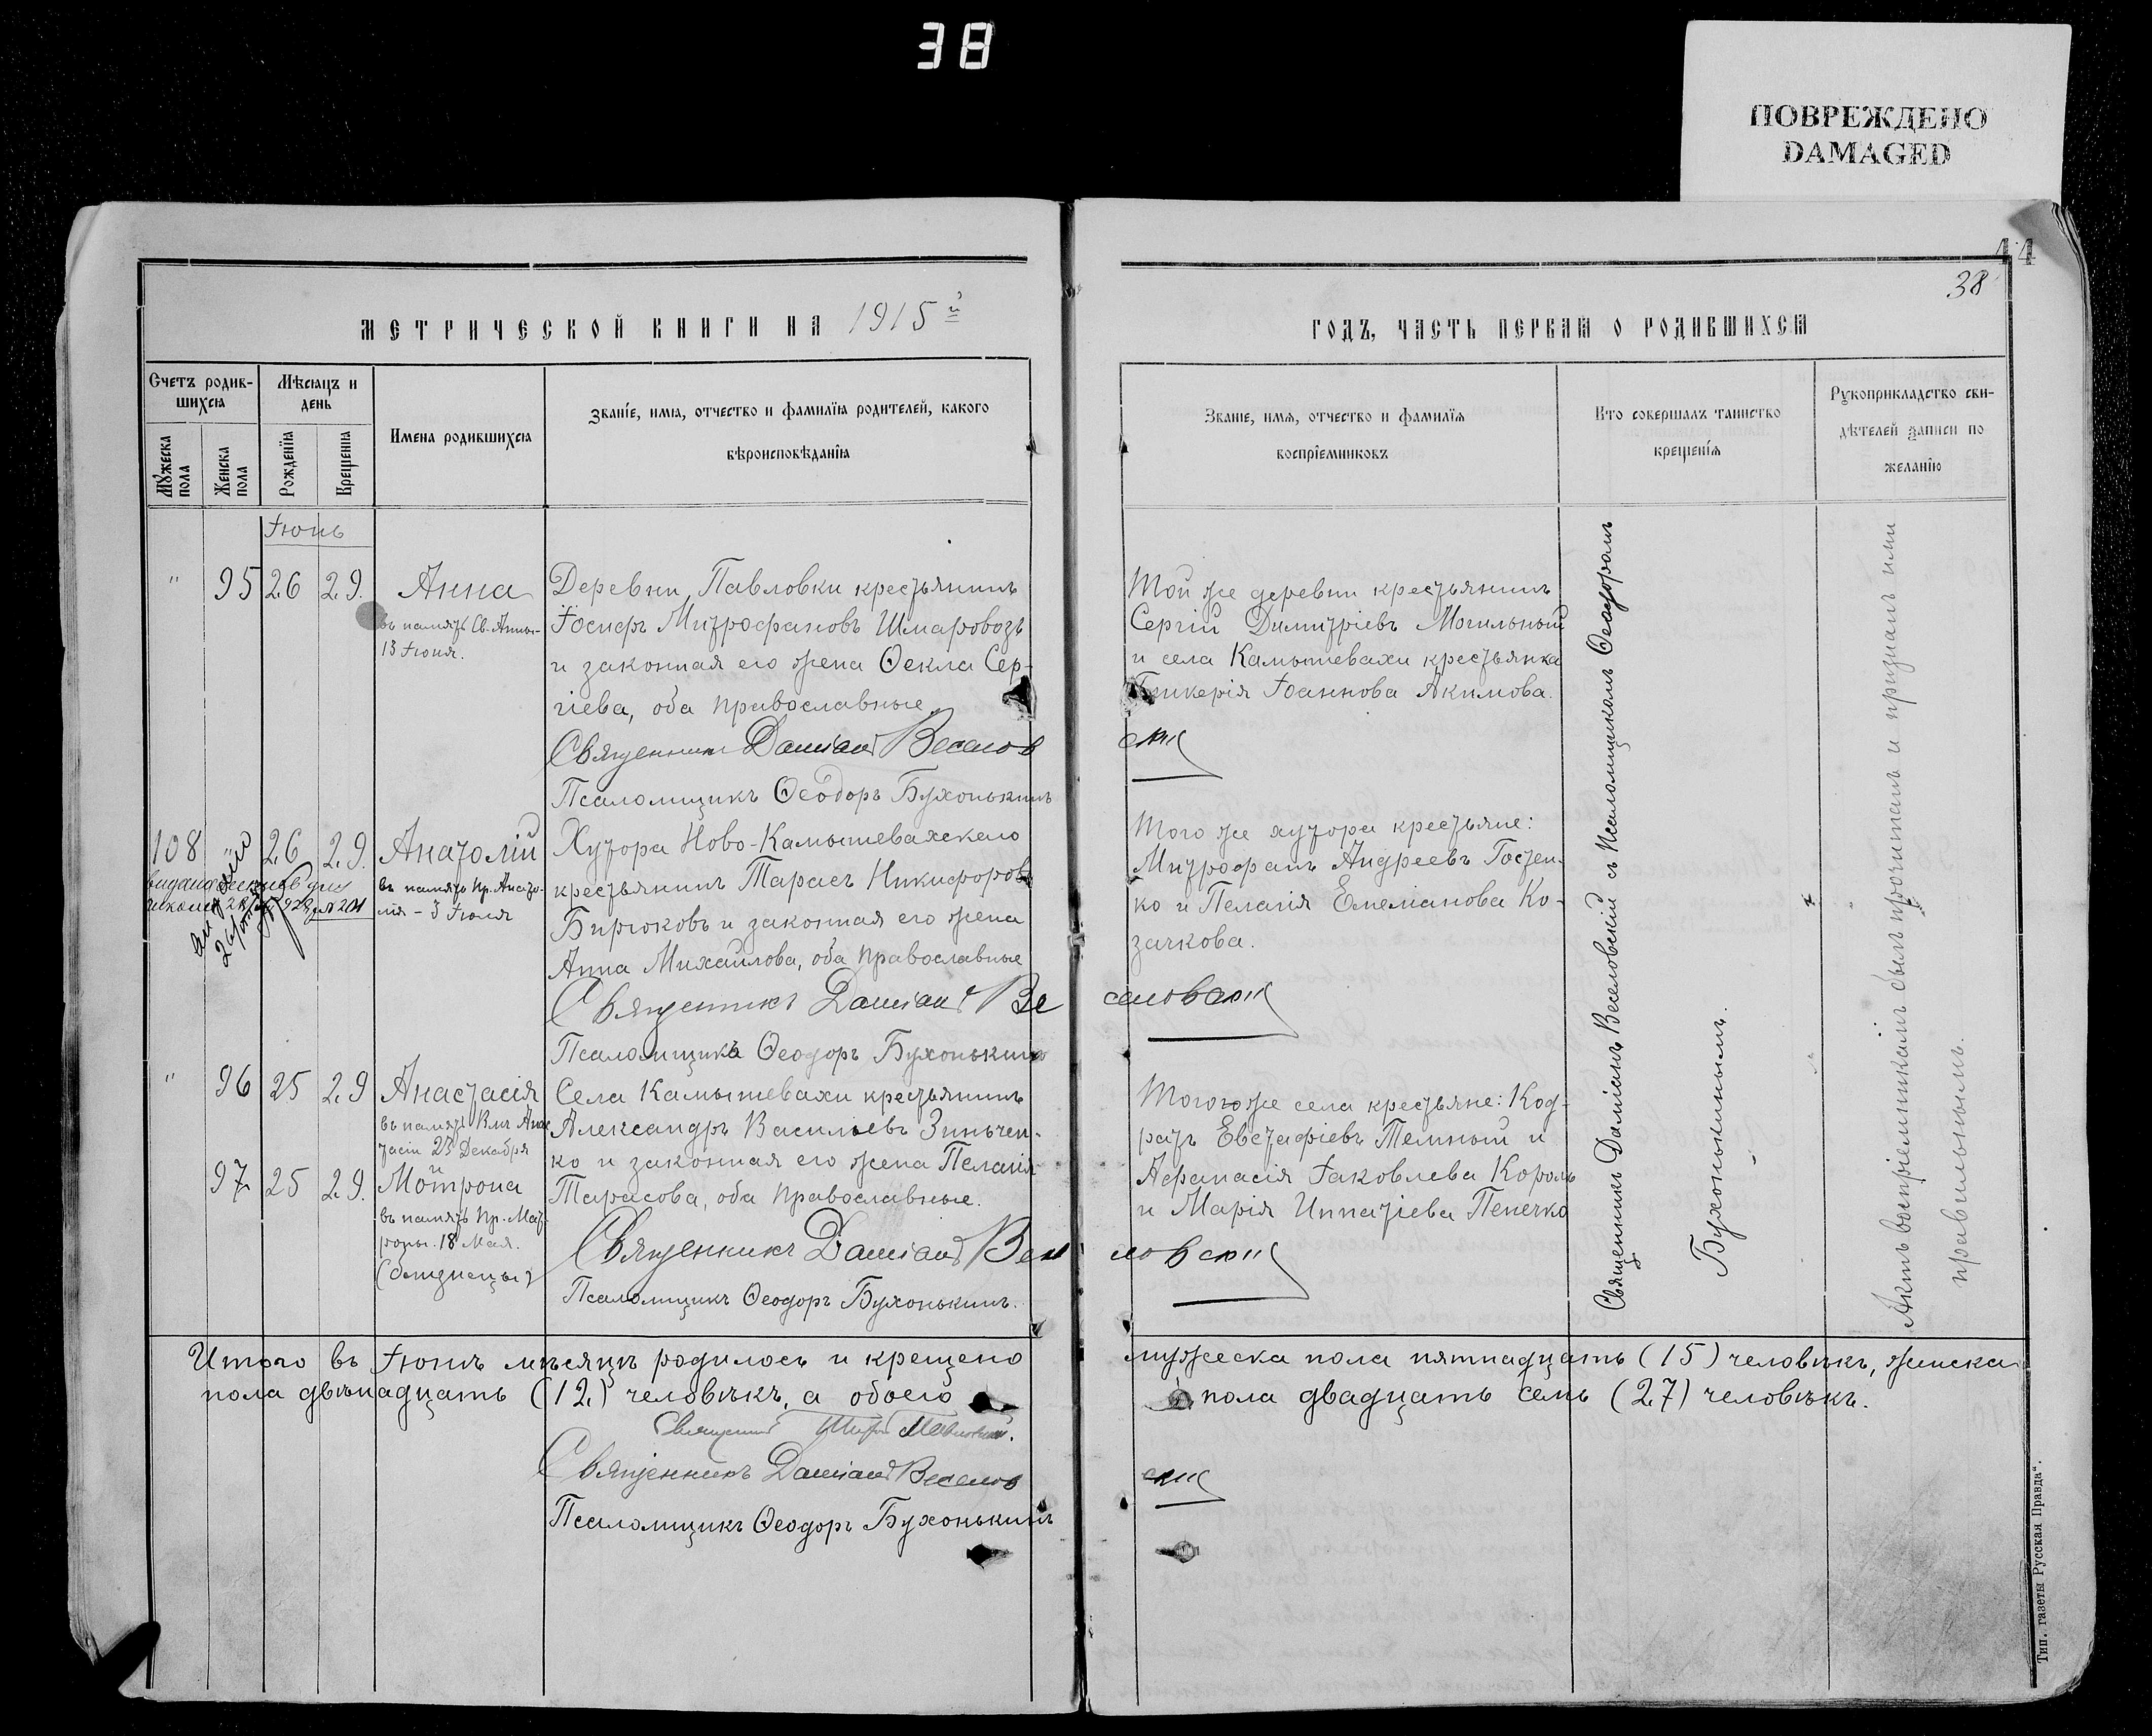 38
ПОВРЕЖДЕНО
DAMAGED
44
38
МЕТРИЧЕСКОЙ КНИГИ НА 1915й
ГОДЪ, ЧАСТЬ ПЕРВАЯ О РОДИВШИХСЯ
Счетъ родив-
шихся
Мѣсяцъ и
день
Мужеска
пола
Женска
пола
Рожденія
Крещенія
Имена родившихся
Званіе, имя, отчество и фамилія родителей, какого
вѣроисповѣданія
Званіе, имя, отчество и фамилія
воспріемниковъ
Кто совершалъ таинство
крещенія
Рукоприкладство сви-
дѣтелей записи по
желанію
Іюнь
" 95 26 29. Анна
въ память Св. Анны-
13 Іюня.
Деревни Павловки крестьянинъ
Іосифъ Митрофановъ Шмаровозъ
и законная его жена Ѳекла Сер-
гіева, оба православные.
Священникъ Даміанъ Веселов
скій
Псаломщикъ Ѳеодоръ Бухонькинъ
Той же деревни крестьянинъ
Сергій Димитріевъ Могильный
и села Камышевахи крестьянка
Гликерія Іоаннова Якимова.
108 " 26 29. Анатолій
въ память Пр. Анато-
лія - 3 Іюля
Хутора Ново-Камышевахскаго
крестьянинъ Тарасъ Никифоровъ
Бирюковъ и законная его жена
Анна Михайлова, оба православные
Священникъ Даміанъ Ве
селовскій
Псаломщикъ Ѳеодоръ Бухонькинъ
Того же хутора крестьяне:
Митрофанъ Андреевъ Гостен-
ко и Пелагія Емеліанова Ко-
зачкова.
" 96 25 29 Анастасія
въ память Влм Анас
тасіи 25 Декабря
и
97 25 29. Мотрона
въ память Пр. Мат-
роны. 18 Мая.
(близнецы)
Села Камышевахи крестьянинъ
Александръ Васильевъ Зинчен-
ко и законная его жена Пелагія
Тарасова, оба православные.
Священникъ Даміанъ Весе
ловскій
Псаломщикъ Ѳеодоръ Бухонькинъ.
Того же села крестьяне: Код-
ратъ Евстафіевъ Темный и
Афанасія Іаковлева Король
и Марія Ипатіева Пенечко
Священникъ Даміанъ Веселовскій съ Псаломщикомъ Ѳеодоромъ
Бухонькинымъ.
Актъ воспріемникамъ былъ прочитанъ и признанъ ими
правильнымъ.
Итого въ Іюнѣ мѣсяцѣ родилось и крещено мужеска пола пятнадцать (15) человѣкъ, женска
пола двѣнадцать (12) человѣкъ, а обоего пола двадцать семь (27) человѣкъ.
Священникъ
Священникъ Даміанъ Веселов
скій
Псаломщикъ Ѳеодоръ Бухонькинъ
Тип. газеты „Русская Правда“.